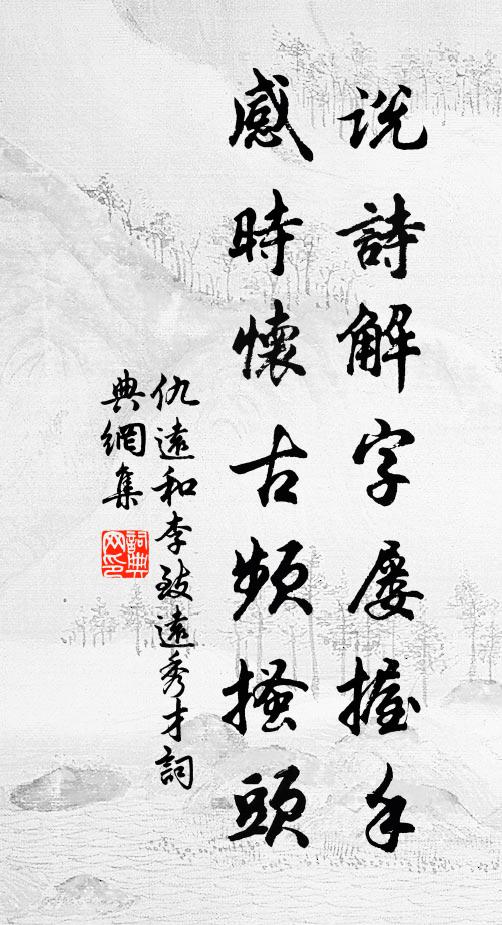 说詩解字屡握手
感時懷古頻搔頭
仇遠和李致遠秀才詞
典網集
詞典
网印